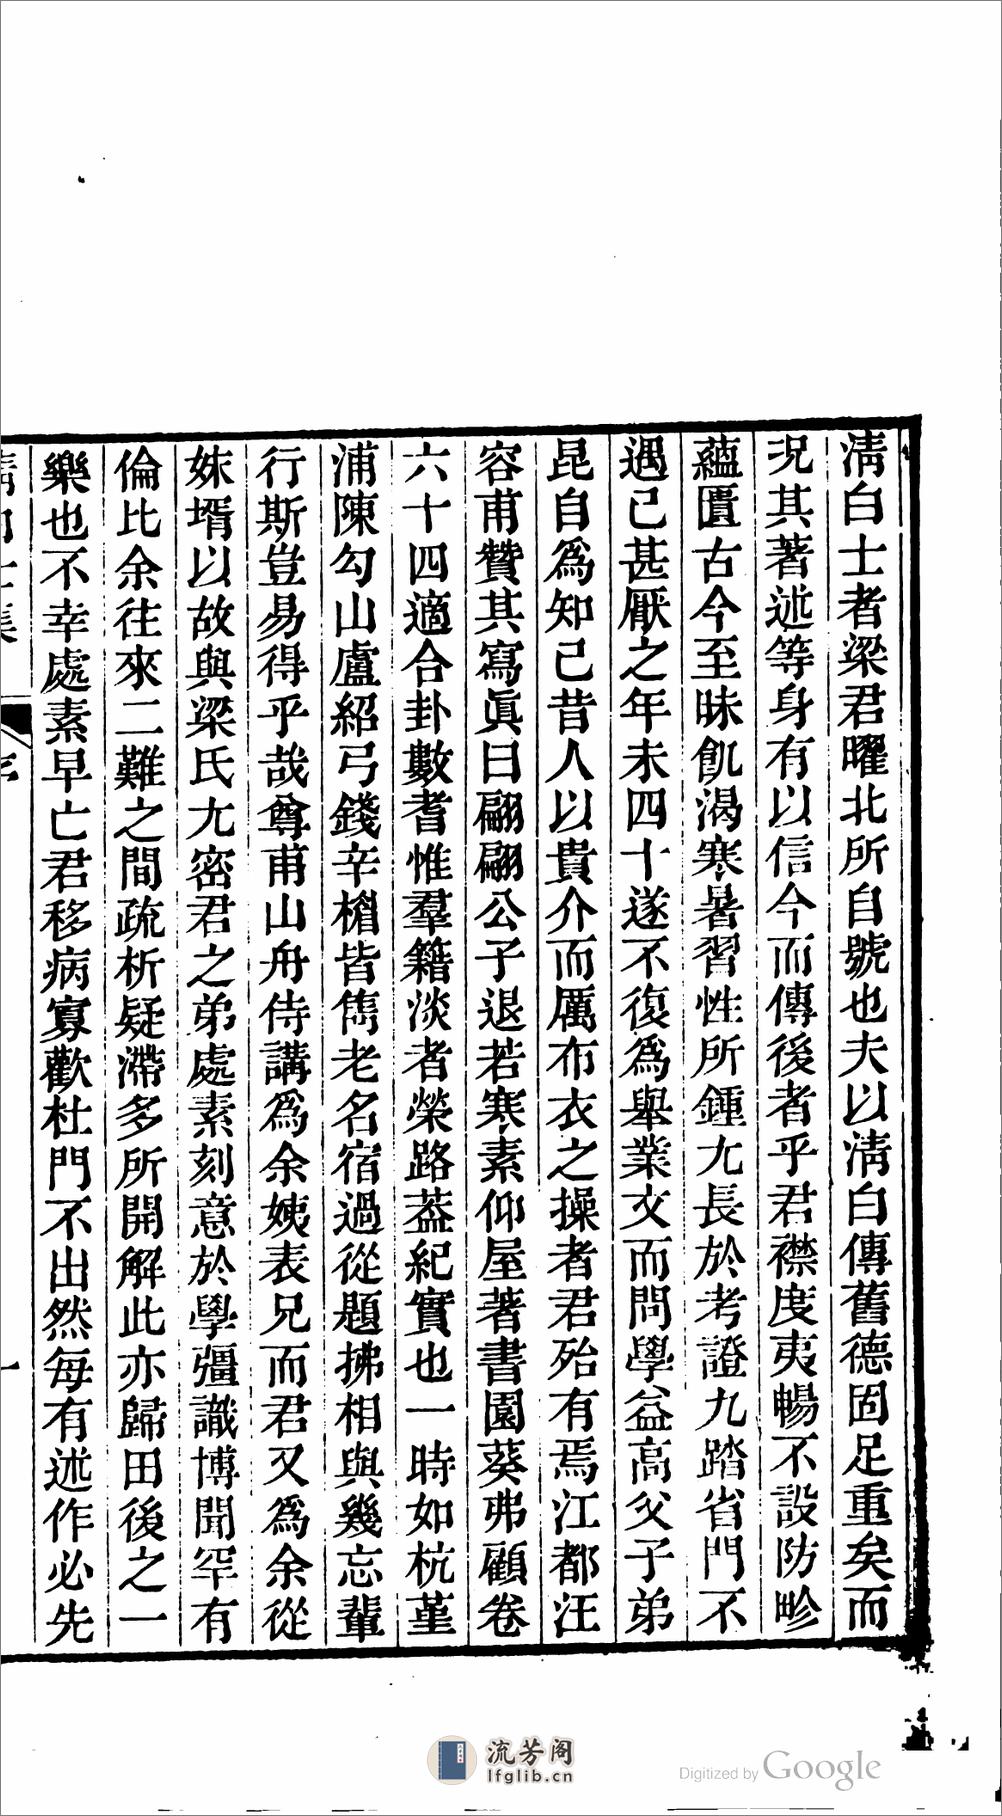 淸白士者梁君曜北所自號也夫以淸白傳舊德固足重矣而
况其著述等身有以信今而傳後者乎君襟度夷暢不設防畛
蘊匱古今至昧飢渴寒暑習性所鍾尤長於考證九踏省門不
遇已甚厭之年未四十遂不復爲舉業文而問學益高父子弟
昆自爲知己昔人以貴介而厲布衣之操者君殆有焉江都汪
容甫贊其寫眞曰翩翩公子退若寒素仰屋著書園葵弗顧卷
六十四適合卦數耆惟羣籍淡者榮路葢紀實也一時如杭堇
浦陳勾山盧紹弓錢辛楣皆雋老名宿過從題拂相與幾忘輩
行斯豈易得乎哉尊甫山舟侍講爲余姨表兄而君又爲余從
妹壻以故與梁氏尤密君之弟處素刻意於學彊識博聞罕有
倫比余往來二難之間疏析疑滯多所開解此亦歸田後之一
樂也不幸處素早亡君移病寡歡杜門不出然每有述作必先
流芳阁
lfglib.cn
Digitized by Google